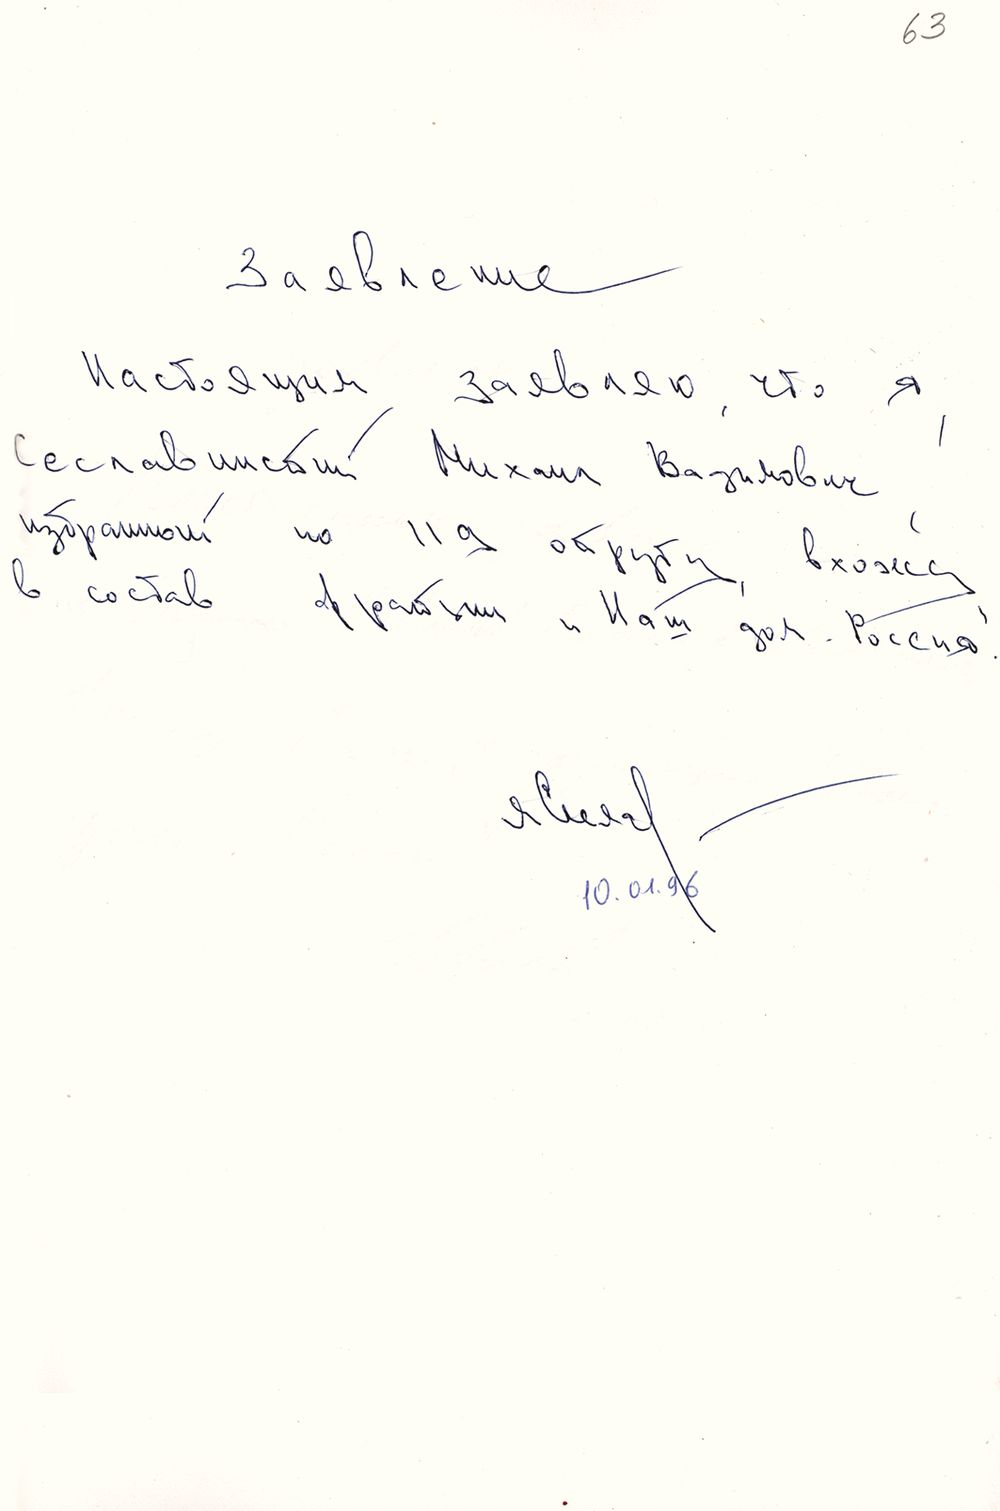 63
Заявление
Настоящим заявляю, что я,
Сеславинский Михаил Вадимович,
избранный по 119 округу, вхожу
в состав фракции "Наш дом - Россия".
10.01.96